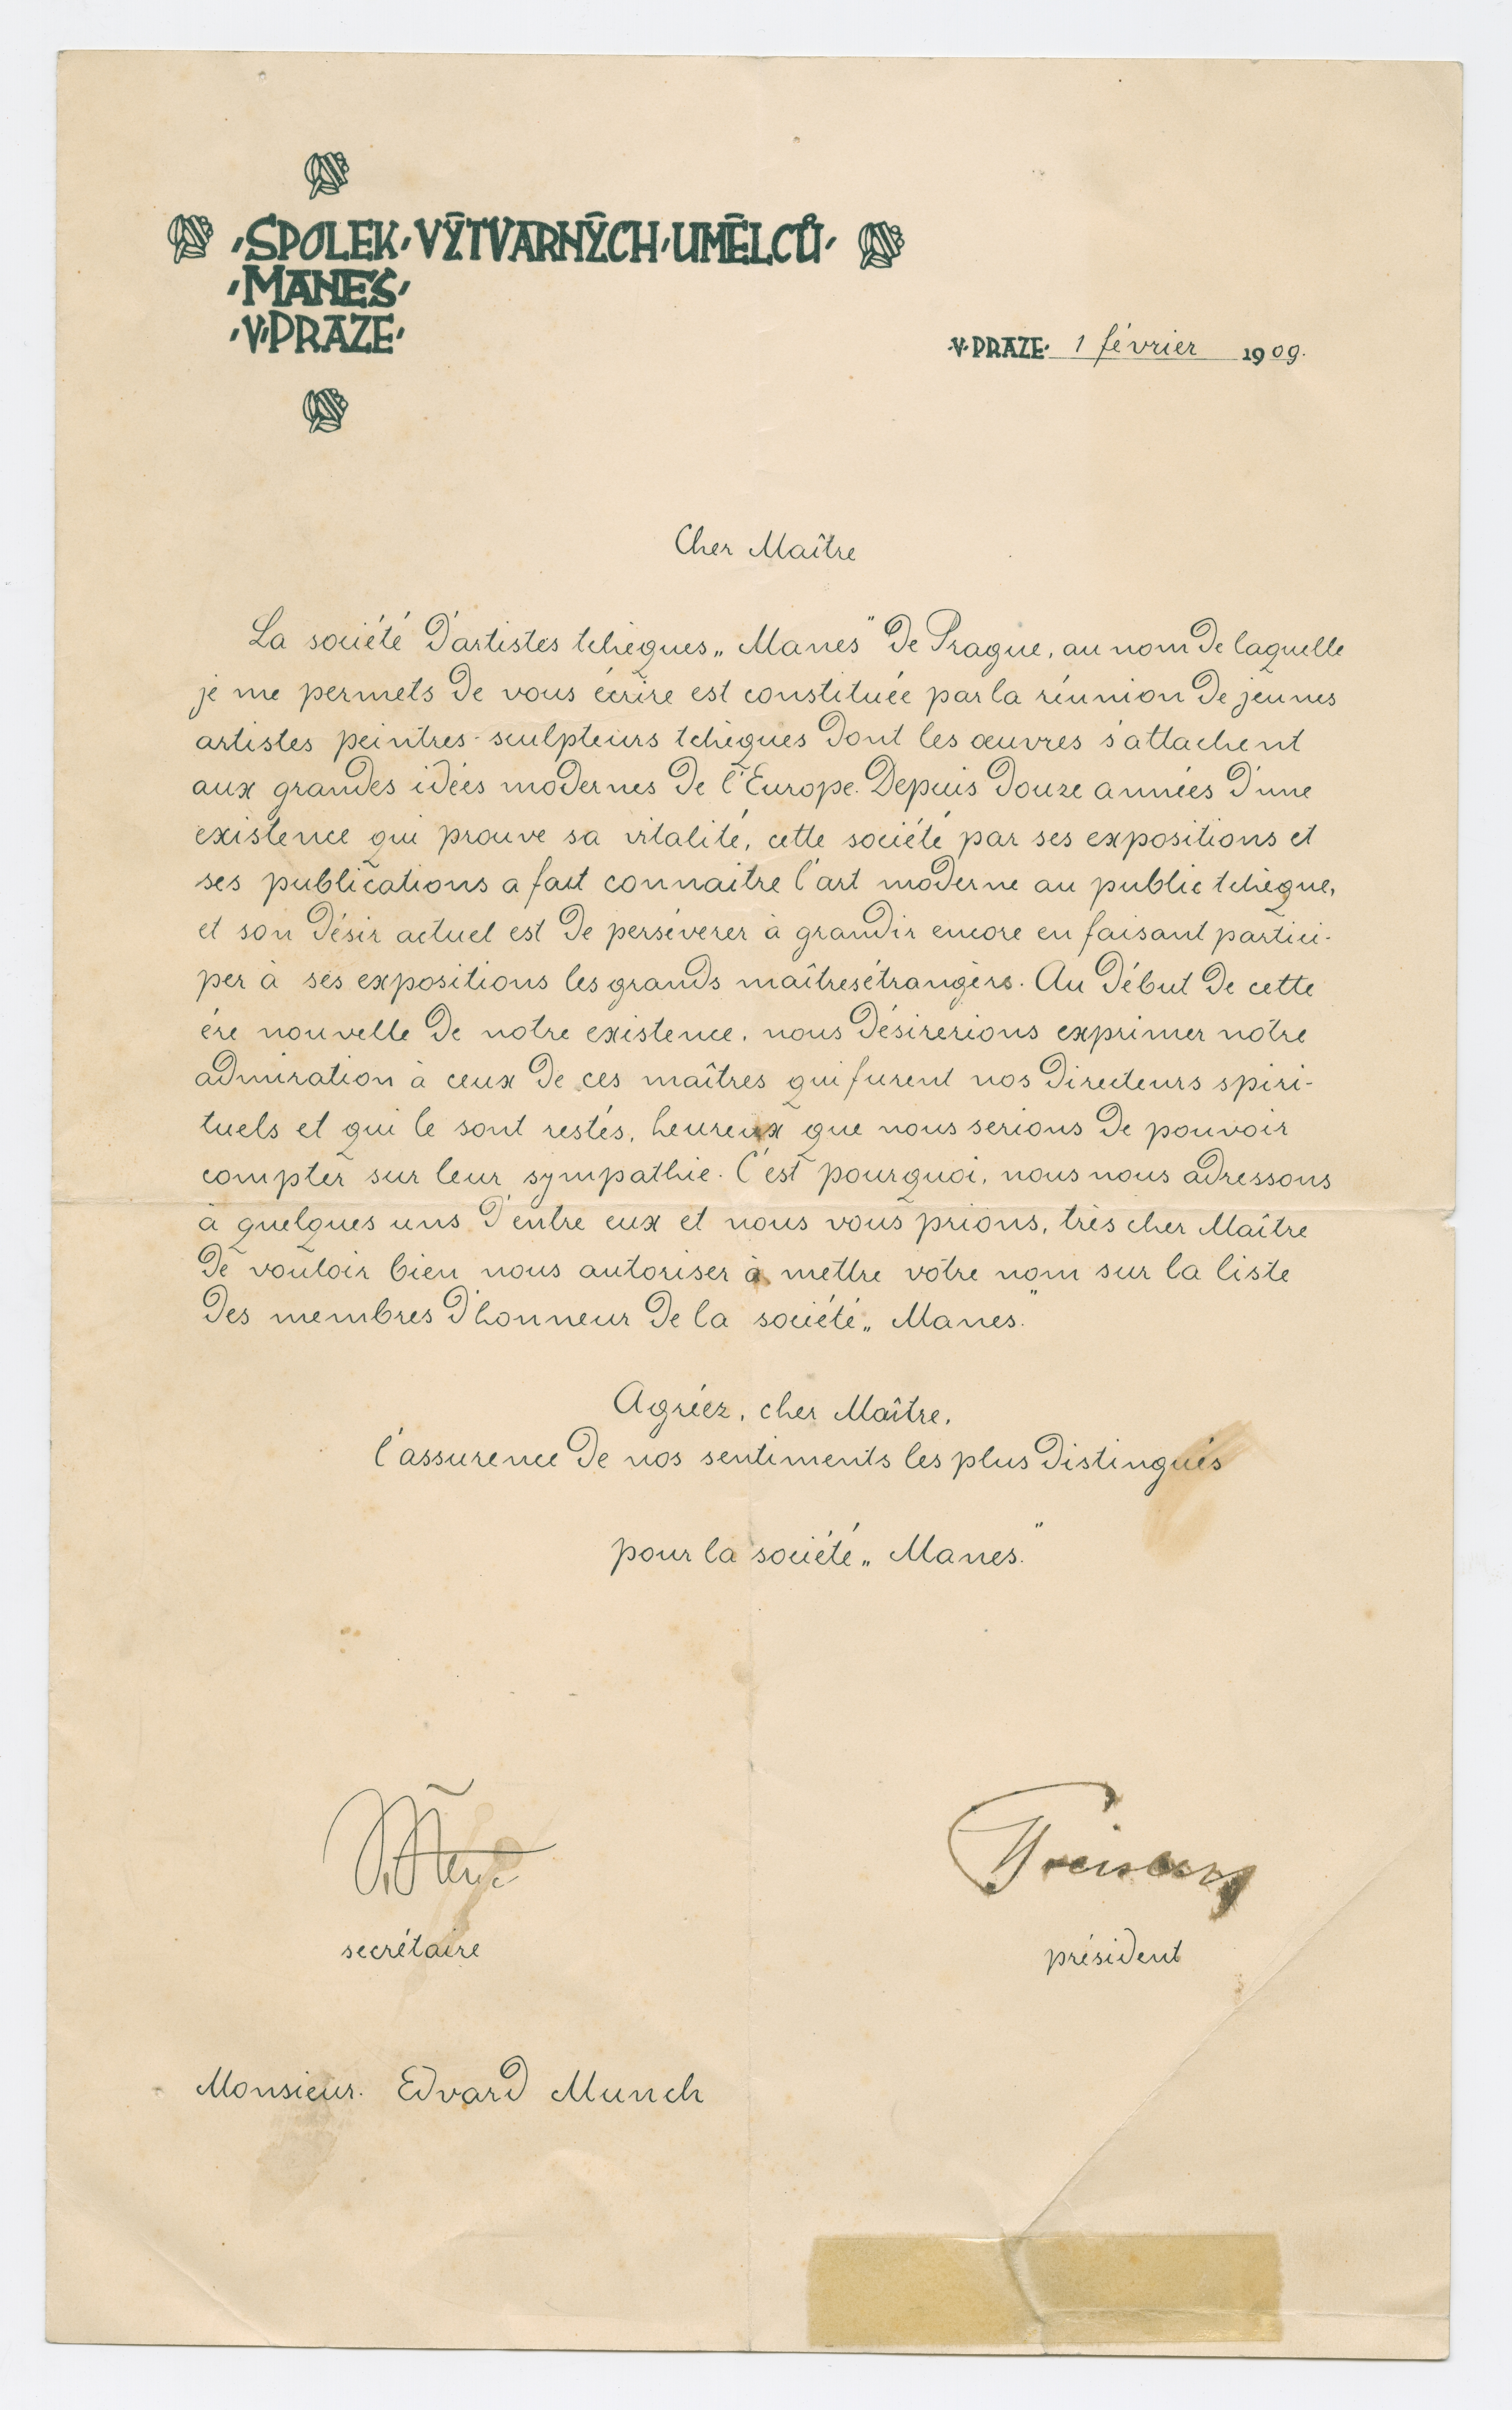 ·SPOLEK·VÝTVARNÝCH·UMĚLCŮ·
·MANES·
·V·PRAZE·
·V·PRAZE· 1 février 1909.
Cher Maître
La société d'artistes tchèques „Manes" de Prague, au nom de laquelle
je me permets de vous écrire est constituée par la réunion de jeunes
artistes peintres-sculpteurs tchèques dont les œuvres s'attachent
aux grandes idées modernes de l'Europe. Depuis douze années d'une
existence qui prouve sa vitalité, cette société par ses expositions et
ses publications a fait connaitre l'art moderne au public tchèque,
et son désir actuel est de persévérer à grandir encore en faisant partici-
per à ses expositions les grands maîtres étrangèrs. Au début de cette
ére nouvelle de notre existence, nous désirerions exprimer notre
admiration à ceux de ces maîtres qui furent nos directeurs spiri-
tuels et qui le sont restés, heureux que nous serions de pouvoir
compter sur leur sympathie. C'est pourquoi, nous nous adressons
à quelques uns d'entre eux et nous vous prions, très cher Maître
de vouloir bien nous autoriser à mettre votre nom sur la liste
des membres d'honneur de la société „Manes."
Agréez, cher Maître,
l'assurence de nos sentiments les plus distingués
pour la société „Manes."
secrétaire
président
Monsieur. Edvard Munch